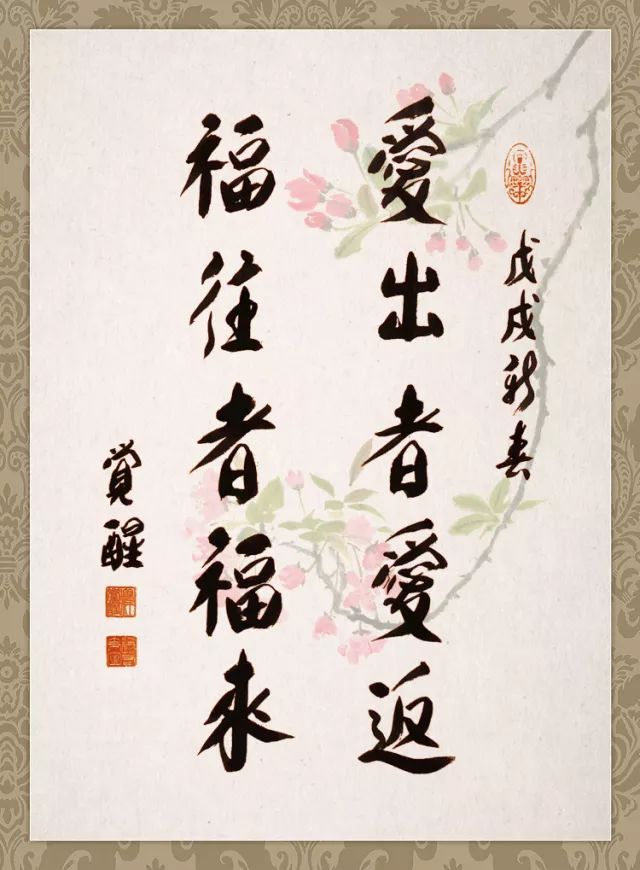 戊戌新春
愛出者愛返
福往者福來
覺醒